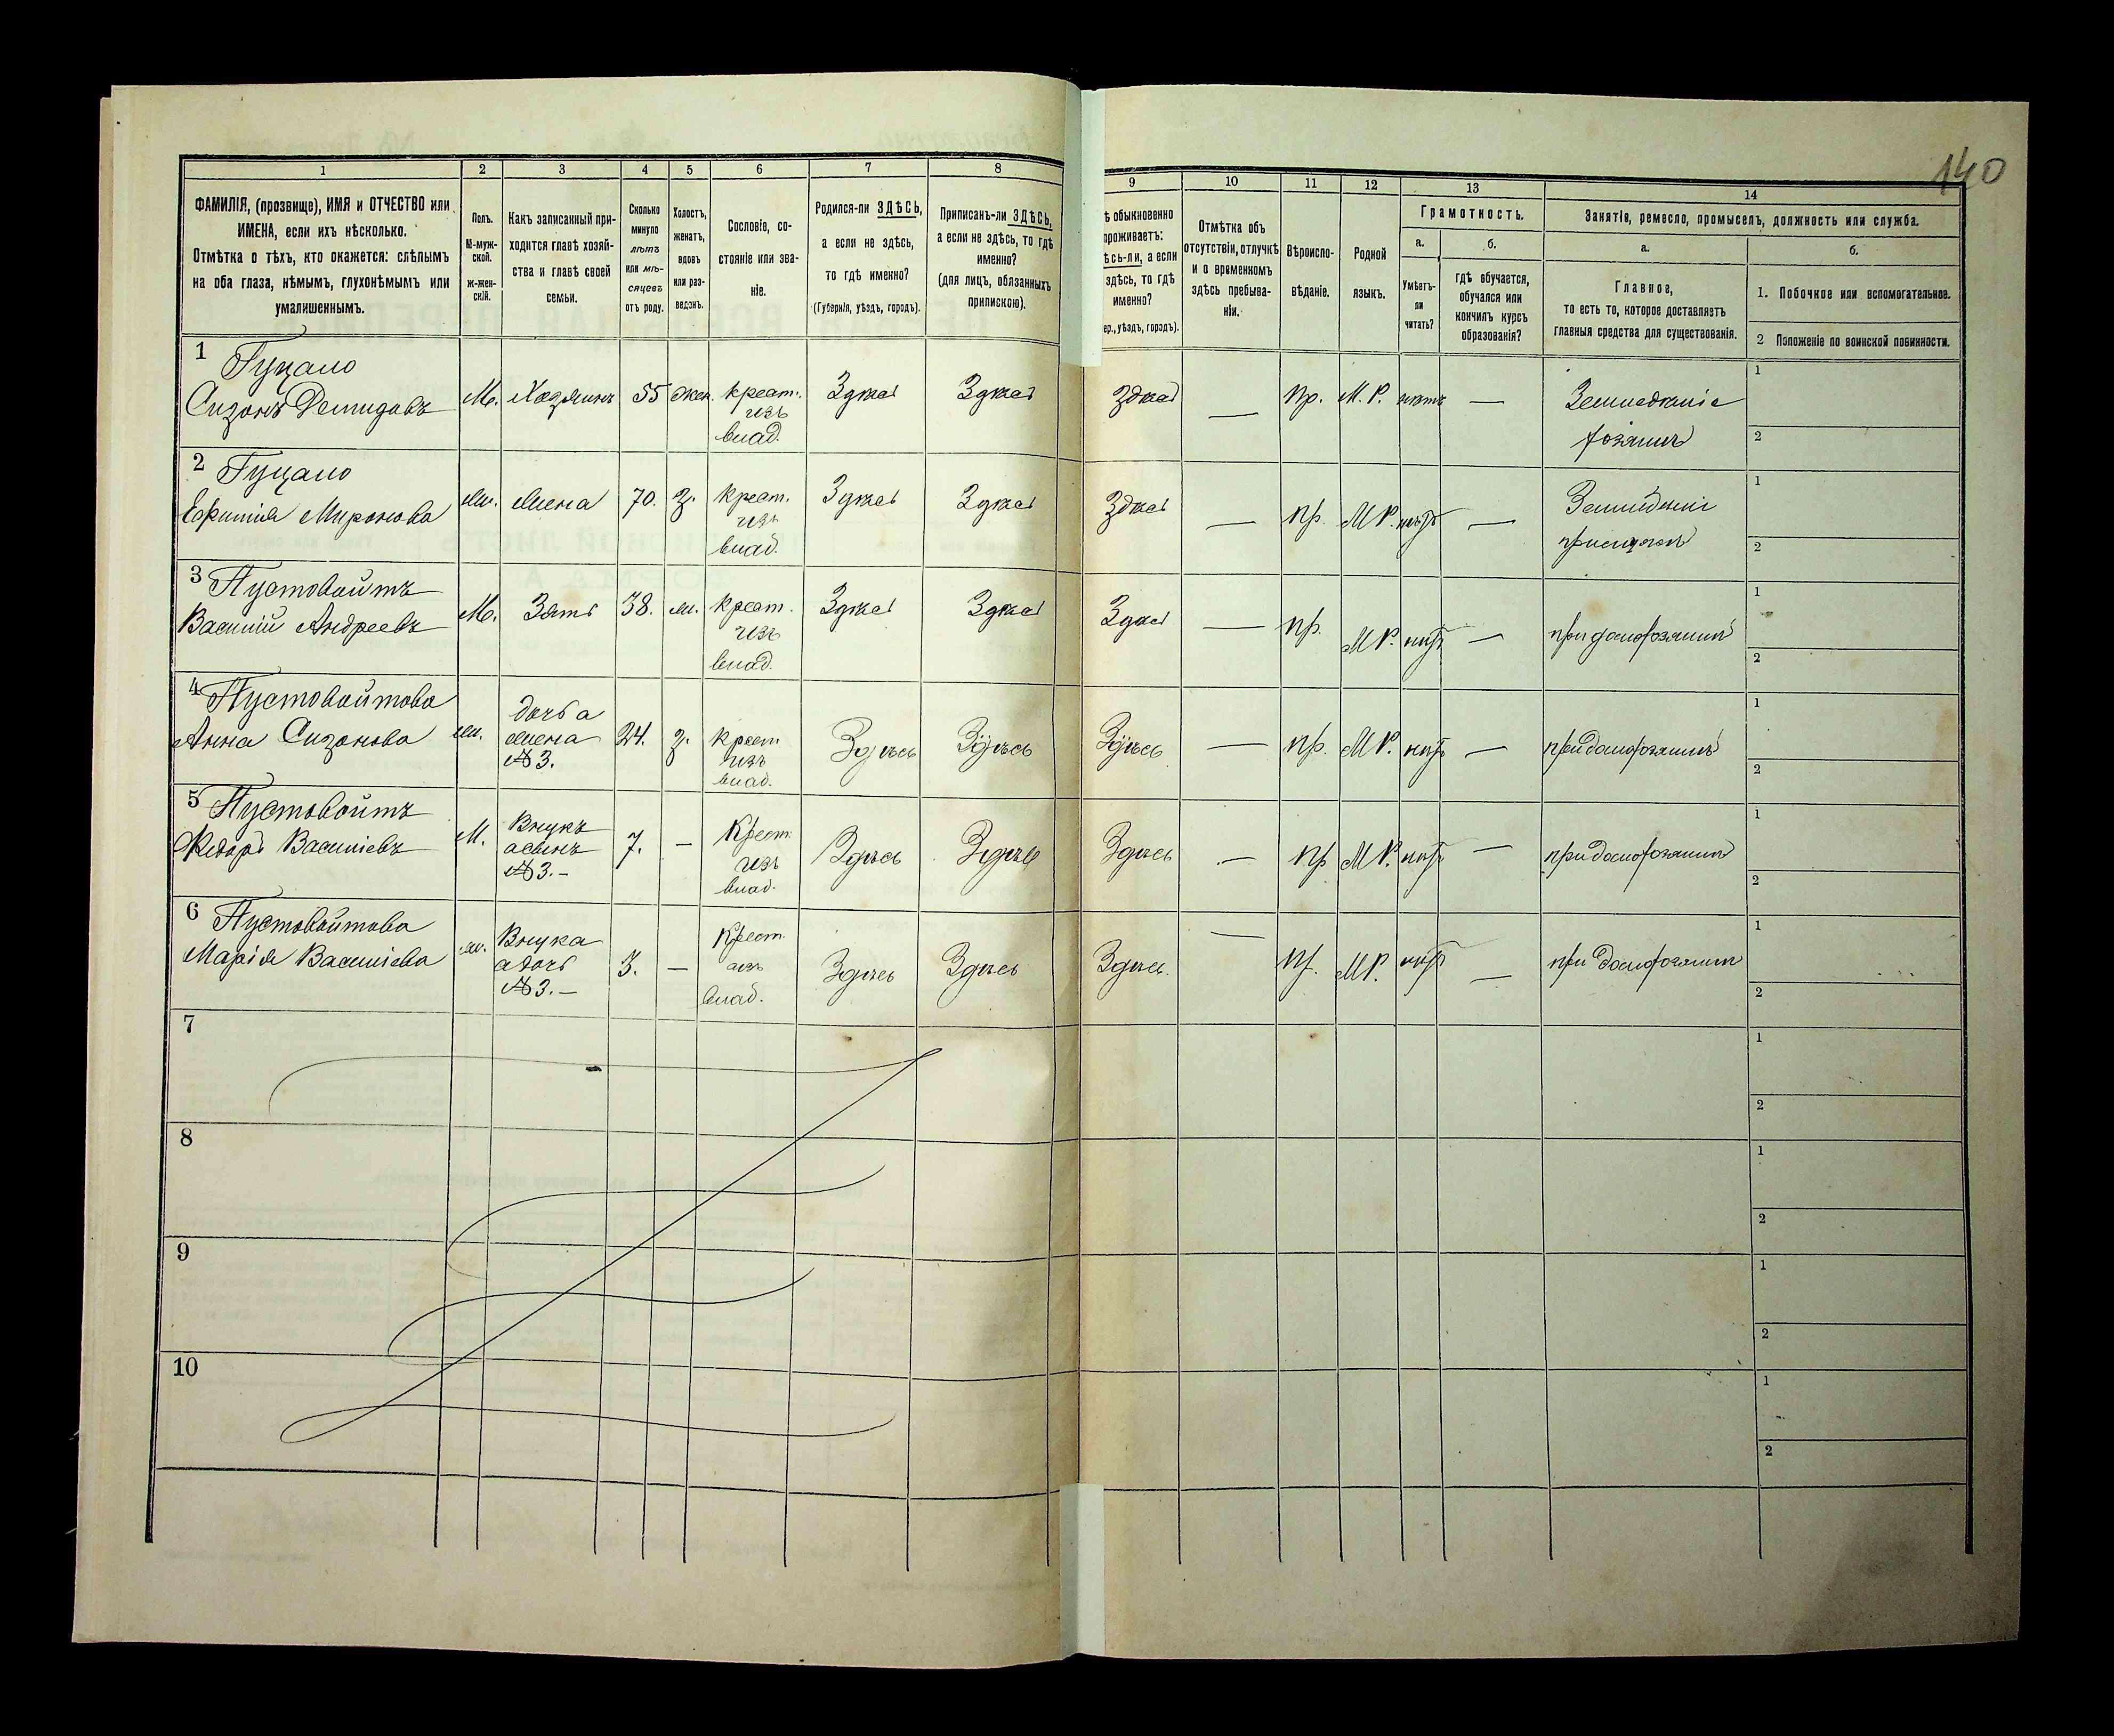 140
1 2 3 4 5 6 7 8 9 10 11 12 13 14
ФАМИЛІЯ, (прозвище), ИМЯ и ОТЧЕСТВО или
ИМЕНА, если ихъ нѣсколько.
Отмѣтка о тѣхъ, кто окажется: слѣпымъ
на оба глаза, нѣмымъ, глухонѣмымъ или
умалишеннымъ.
Полъ.
М-муж-
ской.
Ж-жен-
скій.
Какъ записанный при-
ходится главѣ хозяй-
ства и главѣ своей
семьи.
Сколько
минуло
лѣтъ
или мѣ-
сяцевъ
отъ роду.
Холостъ,
женатъ,
вдовъ
или раз-
веденъ.
Сословіе, со-
стояніе или зва-
ніе.
Родился-ли ЗДѢСЬ,
а если не здѣсь,
то гдѣ именно?
(Губернія, уѣздъ, городъ).
Приписанъ-ли ЗДѢСЬ,
а если не здѣсь, то гдѣ
именно?
(для лицъ, обязанныхъ
припискою).
ѣ обыкновенно
проживаетъ:
ѣсь-ли, а если
здѣсь, то гдѣ
именно?
ер., уѣздъ, городъ).
Отмѣтка объ
отсутствіи, отлучкѣ
и о временномъ
здѣсь пребыва-
ніи.
Вѣроиспо-
вѣданіе.
Родной
языкъ.
Грамотность.
а.
Умѣетъ-
ли
читать?
б.
гдѣ обучается,
обучался или
кончилъ курсъ
образованія?
Занятіе, ремесло, промыселъ, должность или служба.
а.
Главное,
то есть то, которое доставляетъ
главныя средства для существованія.
б.
1. Побочное или вспомогательное.
2 Положеніе по воинской повинности.
1 Гуцало
Сизонъ Демидовъ М. Хозяинъ 55 жен. крест. Здѣсь Здѣсь Здѣсь — Пр. М. Р. нѣтъ — Земледѣліе 1
изъ
влад. хозяинъ 2
2 Гуцало
Ефимія Миронова ж. жена 70. З. крест. Здѣсь Здѣсь Здѣсь — пр. М Р. нѣтъ — 1
изъ
влад. 2
3 Пустовойтъ
Василій Андреевъ М. Зять 38. ж. крест. Здѣсь Здѣсь Здѣсь — пр. М Р. нѣтъ — 1
изъ
влад. 2
4 Пустовойтова
Анна Сизонова ж. дочь а 24. з. крест. Здѣсь Здѣсь Здѣсь — пр. М Р. нѣтъ — 1
жена изъ
№ 3. влад. 2
5 Пустовойтъ
Федоръ Васильевъ М. Внукъ 7. — Крест. Здѣсь Здѣсь Здѣсь — пр М Р. нѣтъ — 1
а сынъ изъ
№ 3.— влад. 2
6 Пустовойтова
Марія Васильева ж. Внука 3. — Крест. Здѣсь Здѣсь Здѣсь. — пр. М Р. нѣтъ — 1
а дочь изъ
№ 3.— влад. 2
7 1
2
8 1
2
9 1
2
10 1
2